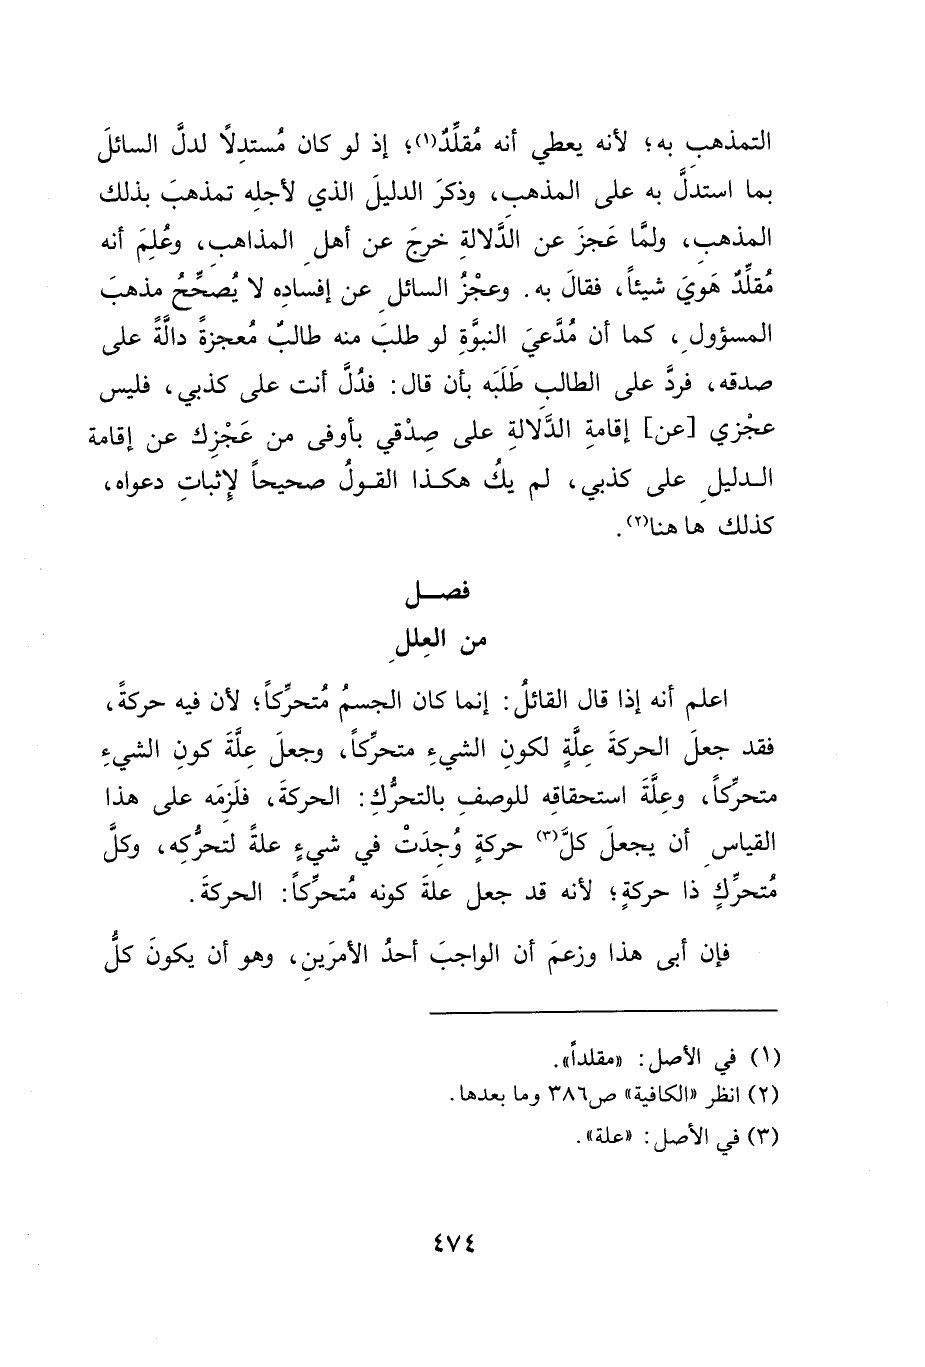 التمذهبِ به؛ لأنه يعطي أنه مُقلِّدٌ(١)؛ إذ لو كان مُستدِلاً لدلَّ السائلَ
بما استدلَّ به على المذهبِ، وذكرَ الدليلَ الذي لأجلِه تمذهبَ بذلك
المذهبِ، ولمَّا عَجزَ عن الدَّلالةِ خرجَ عن أهلِ المذاهبِ، وعُلِمَ أنه
مُقلِّدٌ هَوِيَ شيئاً، فقالَ به. وعجْزُ السائلِ عن إفسادِه لا يُصحِّحُ مذهبَ
المسؤولِ، كما أن مُدَّعيَ النبوَّةِ لو طلبَ منه طالبٌ مُعجزةً دالَّةً على
صدقه، فردَّ على الطالبِ طَلَبَه بأن قال: فدُلَّ أنت على كذبي، فليس
عجْزي [عن] إقامةِ الدَّلالةِ على صِدْقي بأوفى من عَجْزِك عن إقامة
الدليلِ على كذبي، لم يكُ هكذا القولُ صحيحاً لإثباتِ دعواه،
كذلك ها هنا(٢).
فصل
من العِللِ
اعلم أنه إذا قال القائلُ: إنما كان الجسمُ مُتحرِّكاً؛ لأن فيه حركةً،
فقد جعلَ الحركةَ عِلَّةٍ لكونِ الشيءِ متحرِّكاً، وجعلَ عِلَّةَ كونِ الشيءِ
متحرِّكاً، وعِلَّةَ استحقاقِه للوصفِ بالتحرُّكِ: الحركةَ، فلَزِمَه على هذا
القياسِ أن يجعلَ كلَّ(٣) حركةٍ وُجِدَتْ في شيءٍ علةً لتحرُّكِه، وكلَّ
مُتحرِّكٍ ذا حركةٍ؛ لأنه قد جعل علةَ كونه مُتحرِّكاً: الحركةَ.
فإن أبى هذا وزعمَ أن الواجبَ أحدُ الأمرَينِ، وهو أن يكونَ كلُّ
(١) في الأصل: «مقلداً».
(٢) انظر «الكافية» ص٣٨٦ وما بعدها.
(٣) في الأصل: «علة».
٤٧٤